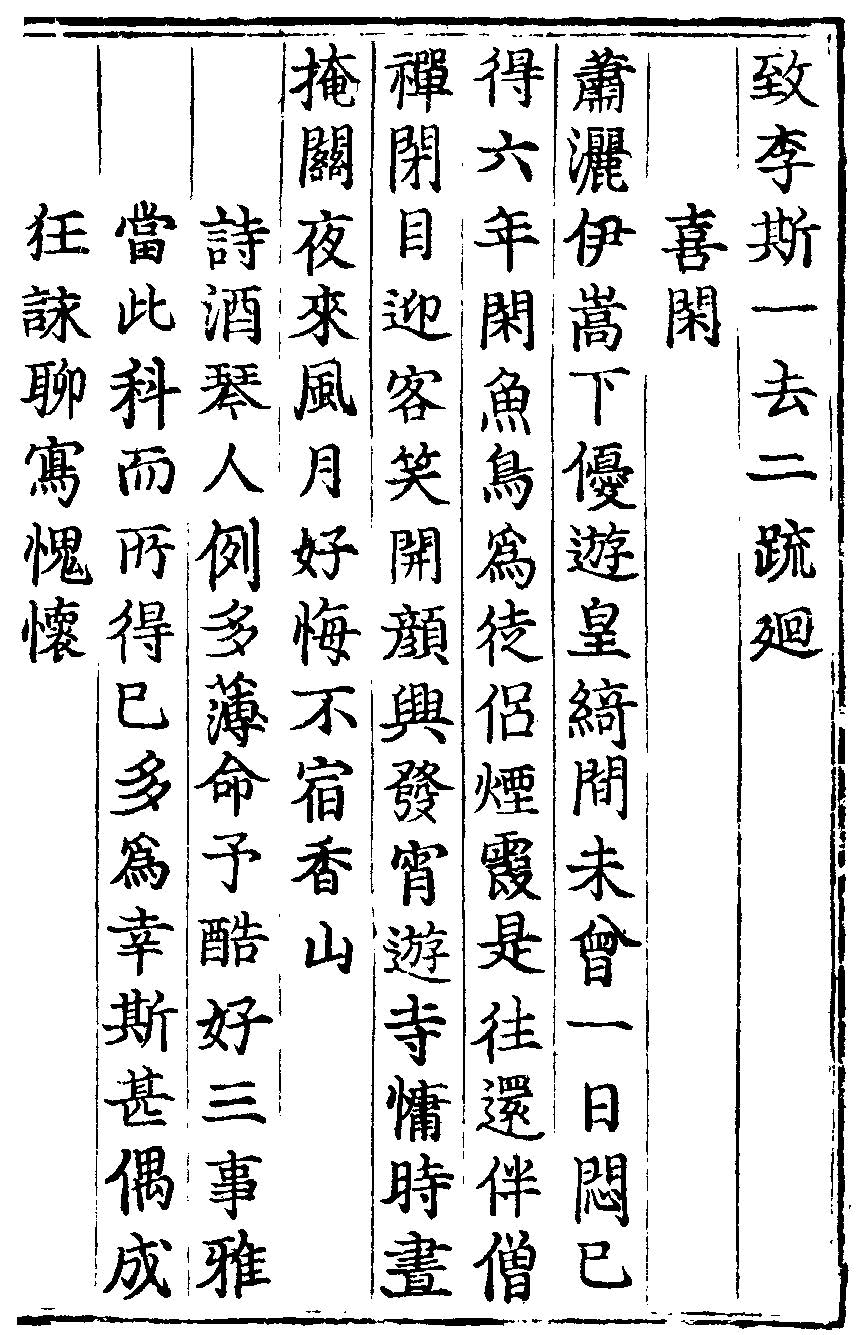 致李斯一去二䟽廻
喜閑
蕭灑伊嵩下優遊皇綺間未曾一日悶已
得六年閑魚鳥爲徒侶煙霞是往還伴僧
禪閉目迎客笑開顔興發宵遊寺慵時晝
掩關夜來風月好悔不宿香山
詩酒琴人例多薄命予酷好三事雅
當此科而所得已多爲幸斯甚偶成
狂詠聊寫愧懷